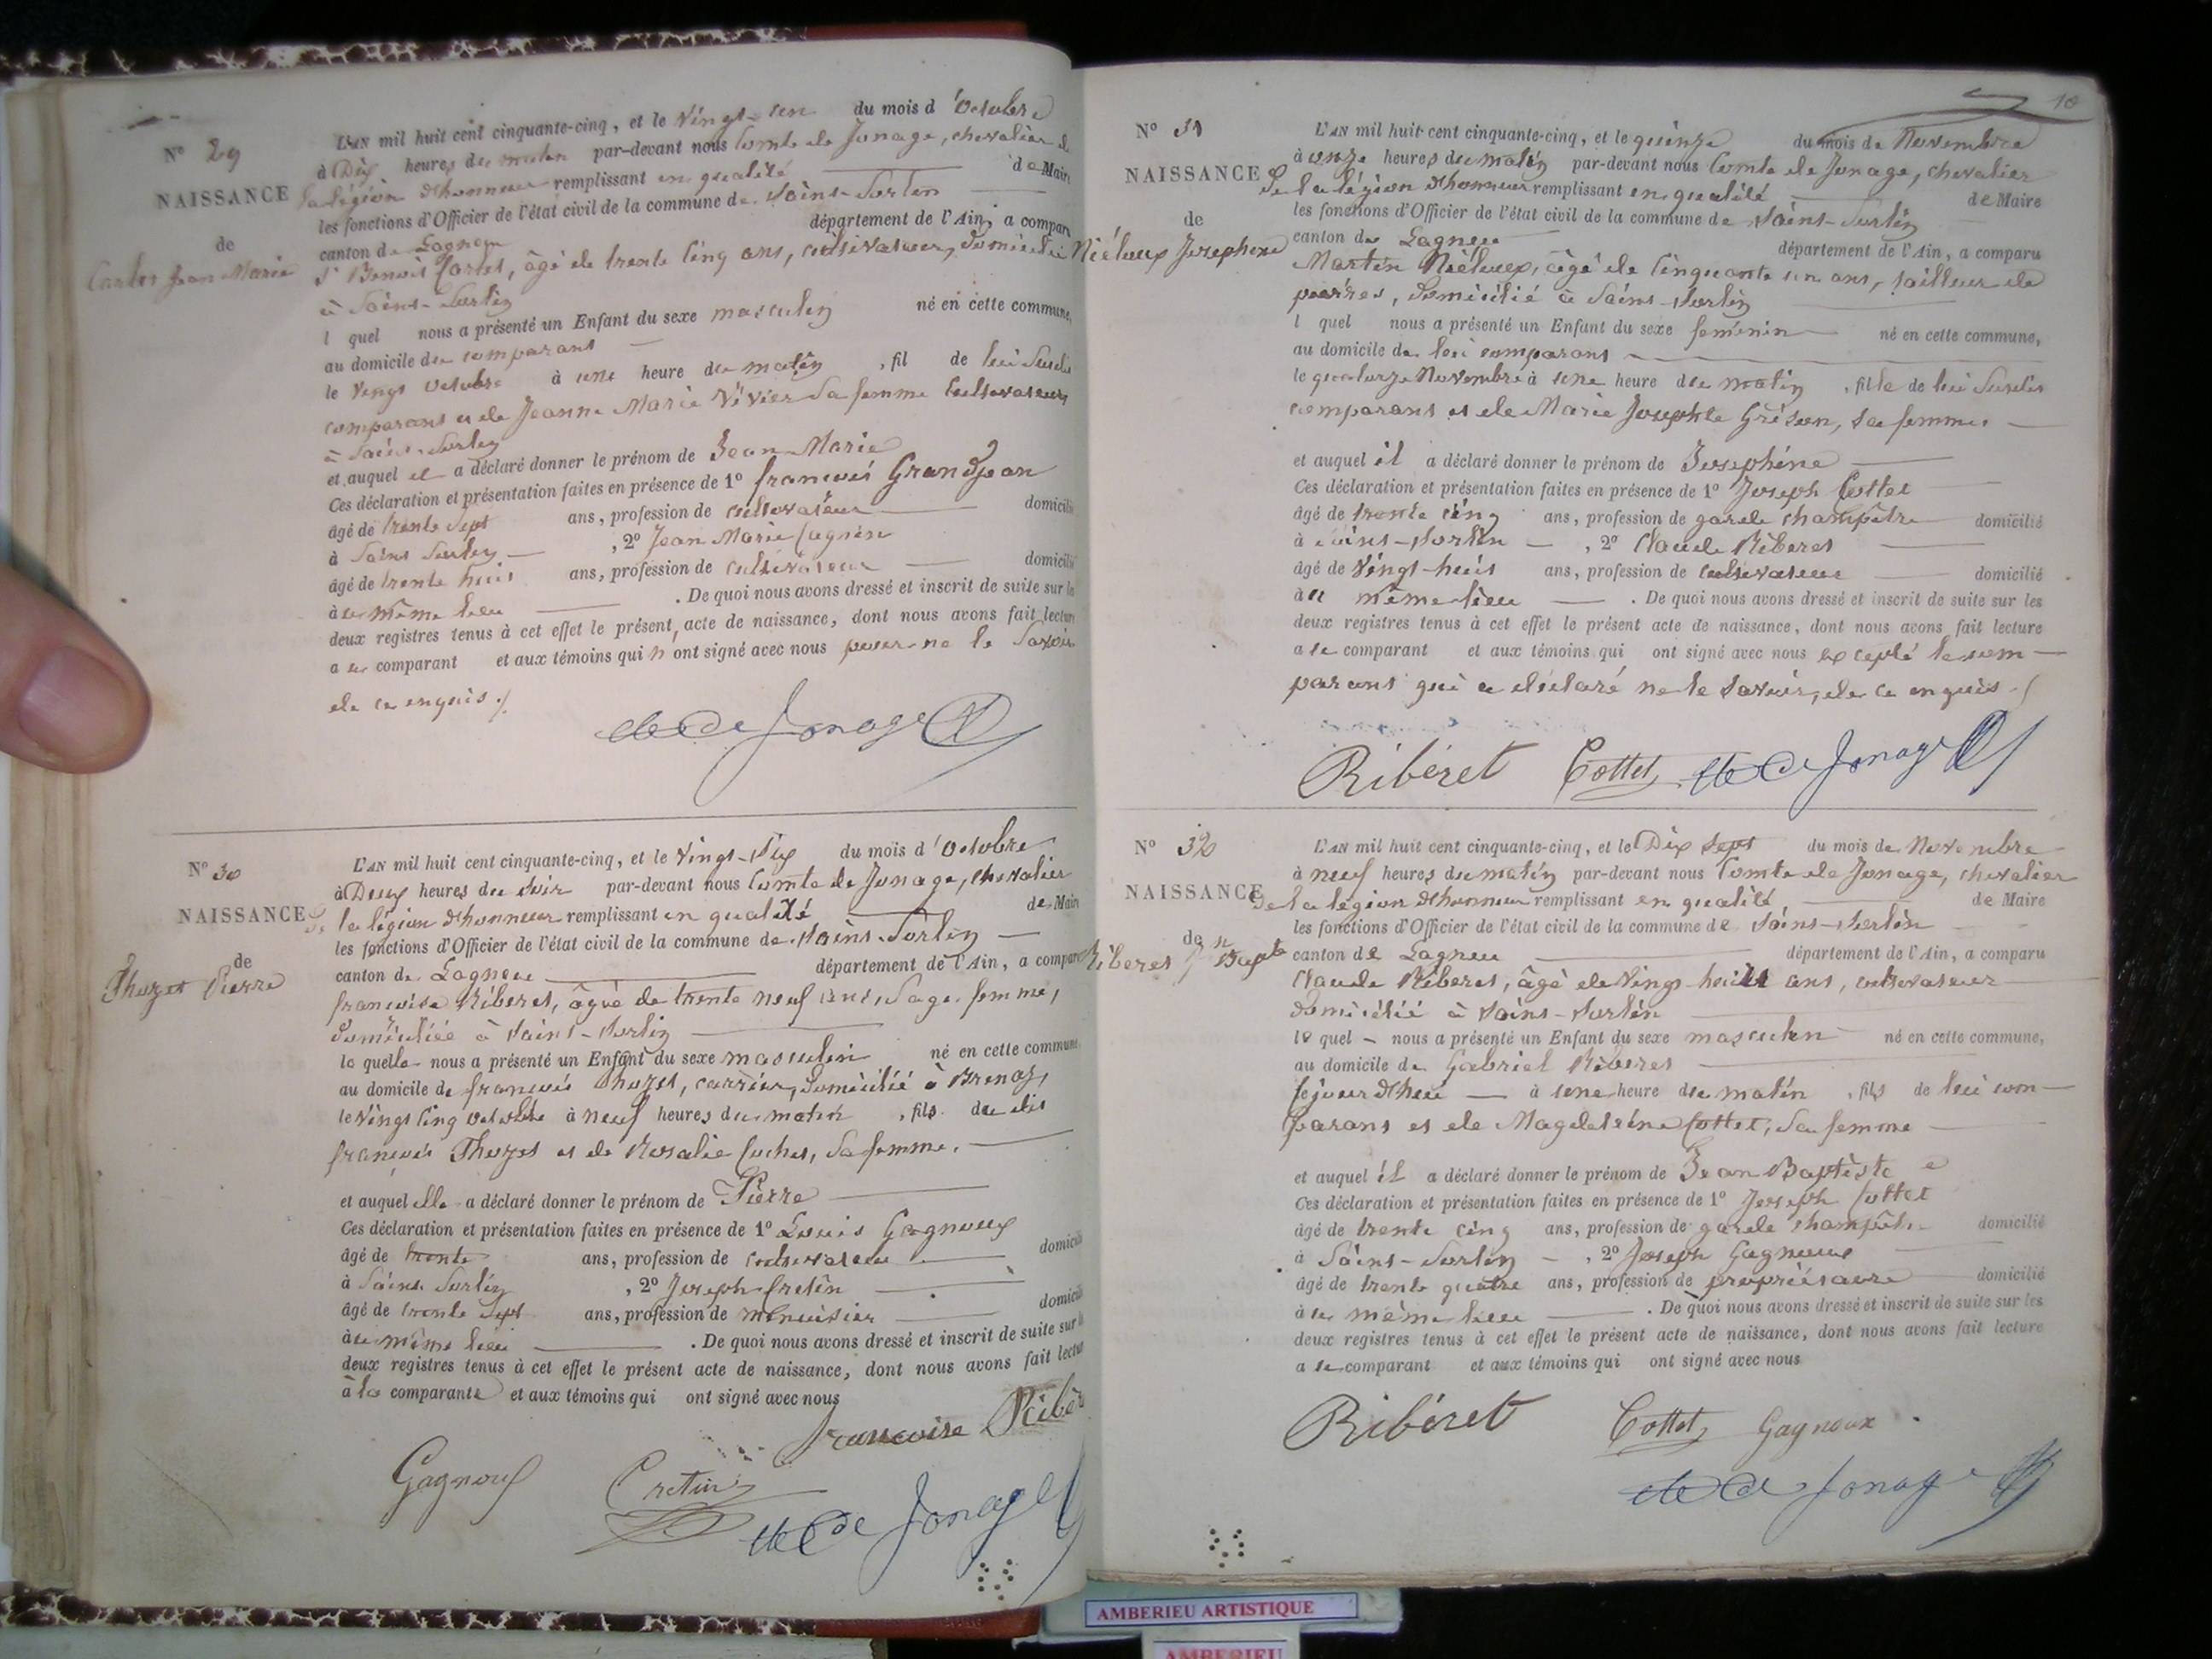 N° 29
NAISSANCE
de
Cortet Jean Marie
L'AN mil huit cent cinquante-cinq, et le vingt-un du mois d'octobre
à Dix heures du matin par-devant nous Comte de Jonage, chevalier de
la légion d'honneur remplissant en qualité de Maire
les fonctions d'Officier de l'état civil de la commune de Saint-Sorlin
canton de Lagneu département de l'Ain, a comparu
St Benoit Cortet, âgé de trente cinq ans, cultivateur, domicilié
à Saint-Sorlin
l quel nous a présenté un Enfant du sexe masculin né en cette commune,
au domicile du comparant
le vingt octobre à une heure du matin, fil de lui susdit
comparant et de Jeanne Marie Vivier sa femme cultivateurs
à Saint-Sorlin
et auquel il a déclaré donner le prénom de Jean Marie
Ces déclaration et présentation faites en présence de 1° françois Grandjean
âgé de trente sept ans, profession de cultivateur domicilié
à Saint Sorlin, 2° Jean Marie
âgé de trente huit ans, profession de cultivateur domicilié
à ce même lieu. De quoi nous avons dressé et inscrit de suite sur les
deux registres tenus à cet effet le présent acte de naissance, dont nous avons fait lecture
a ce comparant et aux témoins qui n ont signé avec nous pour ne le savoir
de ce enquis ./.
de Jonage
N° 30
NAISSANCE
de
Thozet Pierre
L'AN mil huit cent cinquante-cinq, et le vingt-six du mois d'octobre
à Deux heures du soir par-devant nous Comte de Jonage, chevalier
de la légion d'honneur remplissant en qualité de Maire
les fonctions d'Officier de l'état civil de la commune de Saint-Sorlin
canton de Lagneu département de l'Ain, a comparu
françoise Riberet, âgée de trente neuf ans, sage femme,
domiciliée à Saint-Sorlin
la quelle nous a présenté un Enfant du sexe masculin né en cette commune,
au domicile de françois Thozet, carrier, domicilié à Brenaz,
le vingt cinq octobre à neuf heures du matin, fils du dit
françois Thozet et de Rosalie Cochet, sa femme.
et auquel elle a déclaré donner le prénom de Pierre
Ces déclaration et présentation faites en présence de 1° Louis Gagnoux
âgé de trente ans, profession de cultivateur domicilié
à Saint Sorlin, 2° Joseph Cretin
âgé de trente sept ans, profession de menuisier domicilié
à ce même lieu. De quoi nous avons dressé et inscrit de suite sur les
deux registres tenus à cet effet le présent acte de naissance, dont nous avons fait lecture
à la comparante et aux témoins qui ont signé avec nous
françoise Ribér
Gagnoux Cretin de Jonage
10
N° 31
NAISSANCE
de
Niéloux Josephine
L'AN mil huit cent cinquante-cinq, et le quinze du mois de Novembre
à onze heures du matin par-devant nous Comte de Jonage, chevalier
de la légion d'honneur remplissant en qualité de Maire
les fonctions d'Officier de l'état civil de la commune de Saint-Sorlin
canton de Lagneu département de l'Ain, a comparu
Martin Niéloux, âgé de cinquante un ans, tailleur de
pierres, domicilié à Saint-Sorlin
l quel nous a présenté un Enfant du sexe féminin né en cette commune,
au domicile de lui comparant
le quatorze Novembre à une heure du matin, fille de lui susdit
comparant et de Marie Josephte Grison, sa femme.
et auquel il a déclaré donner le prénom de Josephine
Ces déclaration et présentation faites en présence de 1° Joseph Cottet
âgé de trente cinq ans, profession de garde champêtre domicilié
à Saint-Sorlin, 2° Claude Riberet
âgé de vingt-huit ans, profession de cultivateur domicilié
à ce même lieu. De quoi nous avons dressé et inscrit de suite sur les
deux registres tenus à cet effet le présent acte de naissance, dont nous avons fait lecture
a ce comparant et aux témoins qui ont signé avec nous excepté le com-
parant qui a déclaré ne le savoir, de ce enquis ./.
Ribéret Cottet de Jonage
N° 32
NAISSANCE
de
Riberet Jn Bapte
L'AN mil huit cent cinquante-cinq, et le Dix sept du mois de Novembre
à neuf heures du matin par-devant nous Comte de Jonage, chevalier
de la légion d'honneur remplissant en qualité, de Maire
les fonctions d'Officier de l'état civil de la commune de Saint-Sorlin
canton de Lagneu département de l'Ain, a comparu
Claude Riberet, âgé de vingt huit ans, cultivateur
domicilié à Saint-Sorlin
le quel nous a présenté un Enfant du sexe masculin né en cette commune,
au domicile de Gabriel Riberet
ce jourd'hui à une heure du matin, fils de lui com-
parant et de Magdeleine Cottet, sa femme
et auquel il a déclaré donner le prénom de Jean Baptiste
Ces déclaration et présentation faites en présence de 1° Joseph Cottet
âgé de trente cinq ans, profession de garde champêtre domicilié
à Saint-Sorlin, 2° Joseph Gagnoux
âgé de trente quatre ans, profession de propriétaire domicilié
à ce même lieu. De quoi nous avons dressé et inscrit de suite sur les
deux registres tenus à cet effet le présent acte de naissance, dont nous avons fait lecture
a ce comparant et aux témoins qui ont signé avec nous
Ribéret Cottet Gagnoux
de Jonage
AMBERIEU ARTISTIQUE
AMBERIEU